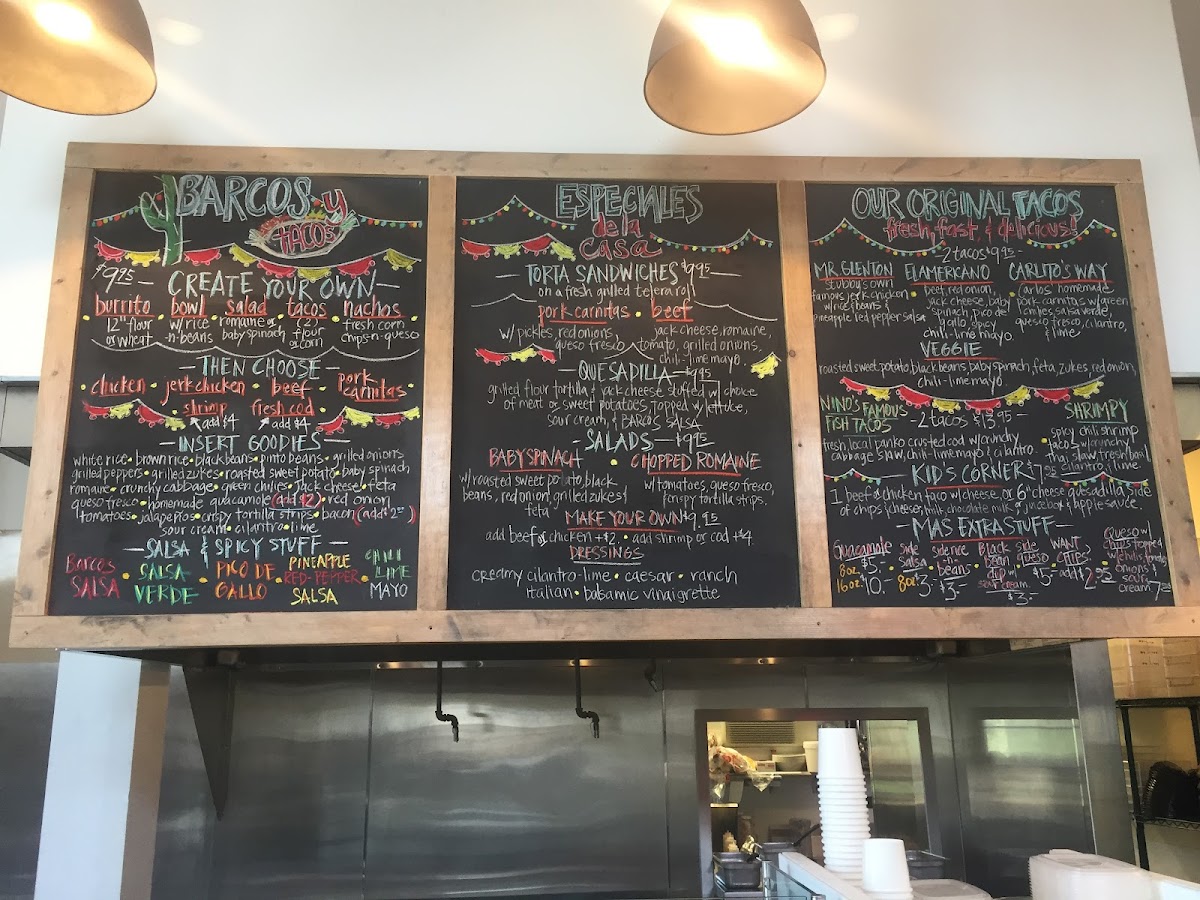 BARCOS y
TACOS
$9.95
CREATE YOUR OWN
burrito bowl salad tacos nachos
12" flour or wheat
w/ rice -n- beans
romaine or baby spinach
(2) flour or corn
fresh corn chips -n- queso
THEN CHOOSE
chicken • jerk chicken • beef • pork carnitas •
shrimp add $4 fresh cod add $4
INSERT GOODIES
white rice • brown rice • black beans • pinto beans • grilled onions
grilled peppers • grilled zukes • roasted sweet potato • baby spinach
romaine • crunchy cabbage • green chilies • jack cheese • feta
queso fresco • homemade guacamole (add $2) • red onion
tomatoes • jalapeños • crispy tortilla strips • bacon (add $2)
sour cream • cilantro • lime
SALSA & SPICY STUFF
BARCOS SALSA
SALSA VERDE
PICO DE GALLO
PINEAPPLE RED-PEPPER SALSA
CHILI LIME MAYO
ESPECIALES
de la
CASA
TORTA SANDWICHES $9.95
on a fresh grilled telera roll
pork carnitas • beef
w/ pickles, red onions, queso fresco
jack cheese, romaine, tomato, grilled onions, chili-lime mayo.
QUESADILLA $9.95
grilled flour tortilla & jack cheese stuffed w/ choice
of meat or sweet potatoes, topped w/ lettuce,
sour cream, & BARCOS SALSA
SALADS $9.95
BABY SPINACH • CHOPPED ROMAINE
w/ roasted sweet potato, black beans, red onion, grilled zukes & feta
w/ tomatoes, queso fresco, & crispy tortilla strips.
MAKE YOUR OWN $9.95
add beef or chicken +$2. • add shrimp or cod +$4
DRESSINGS
creamy cilantro-lime • caesar • ranch
italian • balsamic vinaigrette
OUR ORIGINAL TACOS
fresh, fast, & delicious!
2 tacos $9.95
MR. GLENTON EL AMERICANO CARLITO'S WAY
stubby's own famous jerk chicken w/ rice & beans & pineapple red pepper salsa
beef, red onion, jack cheese, baby spinach, pico de gallo, spicy chili-lime mayo.
Carlos homemade pork carnitas w/ green chilies, salsa verde, queso fresco, cilantro, & lime
VEGGIE
roasted sweet potato, black beans, baby spinach, feta, zukes, red onion,
chili-lime mayo.
NINO'S FAMOUS FISH TACOS - 2 tacos $13.95 - SHRIMPY
fresh local panko crusted cod w/ crunchy cabbage slaw, chili-lime mayo & cilantro
spicy chili shrimp tacos w/ crunchy thai slaw, fresh basil cilantro & lime
KID'S CORNER $7.95
1 beef or chicken taco w/ cheese, or 6" cheese quesadilla, side
of chips & cheese, milk, chocolate milk, or juicebox & applesauce.
MAS EXTRA STUFF
Guacamole 8oz $5- 16oz 10.-
Side Salsa 8oz 3-
Side rice & beans $3.-
Black Bean dip w/ sour cream $3.-
side queso $5-
WANT CHIPS? add $2.
QUESO w/ chips topped w/ chilis, tomato, onions & sour cream 7.95